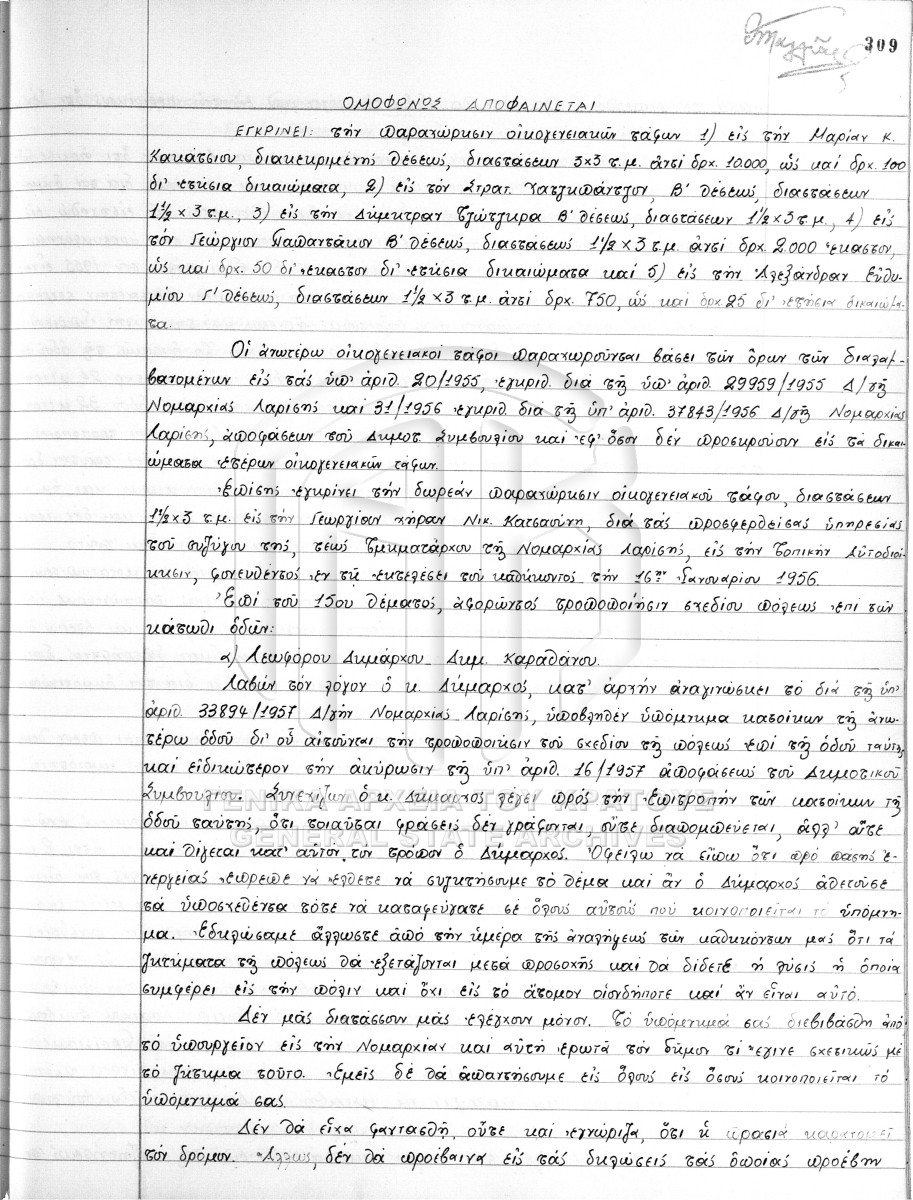 309
ΟΜΟΦΩΝΩΣ ΑΠΟΦΑΙΝΕΤΑΙ
ΕΓΚΡΙΝΕΙ: τήν παραχώρησιν οἰκογενειακῶν τάφων 1) εἰς τήν Μαρίαν Κ.
Κακάτσιου, διακεκριμένης θέσεως, διαστάσεων 3×3 τ.μ. ἀντί δρχ. 10.000, ὡς καί δρχ. 100
δι' ἐτήσια δικαιώματα, 2) εἰς τόν Στρατ. Χατζηπάντζιον, Β' θέσεως, διαστάσεων
1½ × 3 τ.μ., 3) εἰς τήν Δήμητραν Τζώτζηρα Β' θέσεως, διαστάσεων 1½ × 3 τ.μ., 4) εἰς
τόν Γεώργιον Παπαντάκον Β' θέσεως, διαστάσεως 1½ × 3 τ.μ. ἀντί δρχ. 2.000 ἕκαστον,
ὡς καί δρχ. 50 δι' ἕκαστον δι' ἐτήσια δικαιώματα καί 5) εἰς τήν Ἀλεξάνδραν Εὐθυ-
μίου Γ' θέσεως, διαστάσεως 1½ × 3 τ.μ. ἀντί δρχ. 750, ὡς καί δρχ. 25 δι' ἐτήσια δικαιώμα-
τα.
Οἱ ἀνωτέρω οἰκογενειακοί τάφοι παραχωροῦνται βάσει τῶν ὅρων τῶν διαλαμ-
βανομένων εἰς τάς ὑπ' ἀριθ. 20/1955, ἐγκριθ. διά τῆς ὑπ' ἀριθ. 29959/1955 Δ/γῆς
Νομαρχίας Λαρίσης καί 31/1956 ἐγκριθ. διά τῆς ὑπ' ἀριθ. 37843/1956 Δ/γῆς Νομαρχίας
Λαρίσης, ἀποφάσεων τοῦ Δημοτ. Συμβουλίου καί ἐφ' ὅσον δέν προσκρούουν εἰς τά δικαι-
ώματα ἑτέρων οἰκογενειακῶν τάφων.
Ἐπίσης ἐγκρίνει τήν δωρεάν παραχώρησιν οἰκογενειακοῦ τάφου, διαστάσεων
1½ × 3 τ.μ. εἰς τήν Γεωργίαν χήραν Νικ. Κατσαούνη, διά τάς προσφερθείσας ὑπηρεσίας
τοῦ συζύγου της, τέως Τμηματάρχου τῆς Νομαρχίας Λαρίσης, εἰς τήν Τοπικήν Αὐτοδιοί-
κησιν, φονευθέντος ἐν τῇ ἐκτελέσει τοῦ καθήκοντος τήν 16ην Ἰανουαρίου 1956.
Ἐπί τοῦ 15ου θέματος, ἀφορῶντος τροποποίησιν σχεδίου πόλεως ἐπί τῶν
κάτωθι ὁδῶν:
α) Λεωφόρου Δημάρχου Δημ. Καραθάνου.
Λαβών τόν λόγον ὁ κ. Δήμαρχος, κατ' ἀρχήν ἀναγινώσκει τό διά τῆς ὑπ'
ἀριθ. 33894/1957 Δ/γῆν Νομαρχίας Λαρίσης, ὑποβληθέν ὑπόμνημα κατοίκων τῆς ἀνω-
τέρω ὁδοῦ δι' οὗ αἰτοῦνται τήν τροποποίησιν τοῦ σχεδίου τῆς πόλεως ἐπί τῆς ὁδοῦ ταύτης
καί εἰδικώτερον τήν ἀκύρωσιν τῆς ὑπ' ἀριθ. 16/1957 ἀποφάσεως τοῦ Δημοτικοῦ
Συμβουλίου. Συνεχίζων ὁ κ. Δήμαρχος λέγει πρός τήν ἐπιτροπήν τῶν κατοίκων τῆς
ὁδοῦ ταύτης, ὅτι τοιαῦται φράσεις δέν γράφονται, οὔτε διαπομπεύεται, ἀλλ' οὔτε
καί θίγεται κατ' αὐτόν τον τρόπον ὁ Δήμαρχος. Ὀφείλω νά εἴπω ὅτι πρό πάσης ἐ-
νεργείας ἔπρεπε νά ἔλθετε νά συζητήσουμε τό θέμα καί ἄν ὁ Δήμαρχος ἀθετοῦσε
τά ὑποσχεθέντα τότε νά καταφεύγατε σέ ὅλους αὐτούς πού κοινοποιεῖται τό ὑπόμνη-
μα. Ἐδηλώσαμε ἄλλωστε ἀπό τήν ἡμέρα τῆς ἀναλήψεως τῶν καθηκόντων μας ὅτι τά
ζητήματα τῆς πόλεως θά ἐξετάζονται μετά προσοχῆς καί θά δίδεται ἡ λύσις ἡ ὁποία
συμφέρει εἰς τήν πόλιν καί ὄχι εἰς τό ἄτομον οἱονδήποτε καί ἄν εἶναι αὐτό.
Δέν μᾶς διατάσσουν μᾶς ἐλέγχουν μόνον. Τό ὑπόμνημά σας διεβιβάσθη ἀπό
τό ὑπουργεῖον εἰς τήν Νομαρχίαν καί αὐτή ἐρωτᾶ τόν δῆμον τί ἔγινε σχετικῶς μέ
τό ζήτημα τοῦτο. Ἐμεῖς δέ θά ἀπαντήσουμε εἰς ὅλους εἰς ὅσους κοινοποιεῖται τό
ὑπόμνημά σας.
Δέν θά εἶχα φαντασθῆ, οὔτε καί ἐγνώριζα, ὅτι ἡ πρασιά καταργεῖ
τόν δρόμον. Ἄλλως, δέν θά προέβαινα εἰς τάς δηλώσεις τάς ὁποίας προέβην
ΓΕΝΙΚΑ ΑΡΧΕΙΑ ΤΟΥ ΚΡΑΤΟΥΣ
GENERAL STATE ARCHIVES